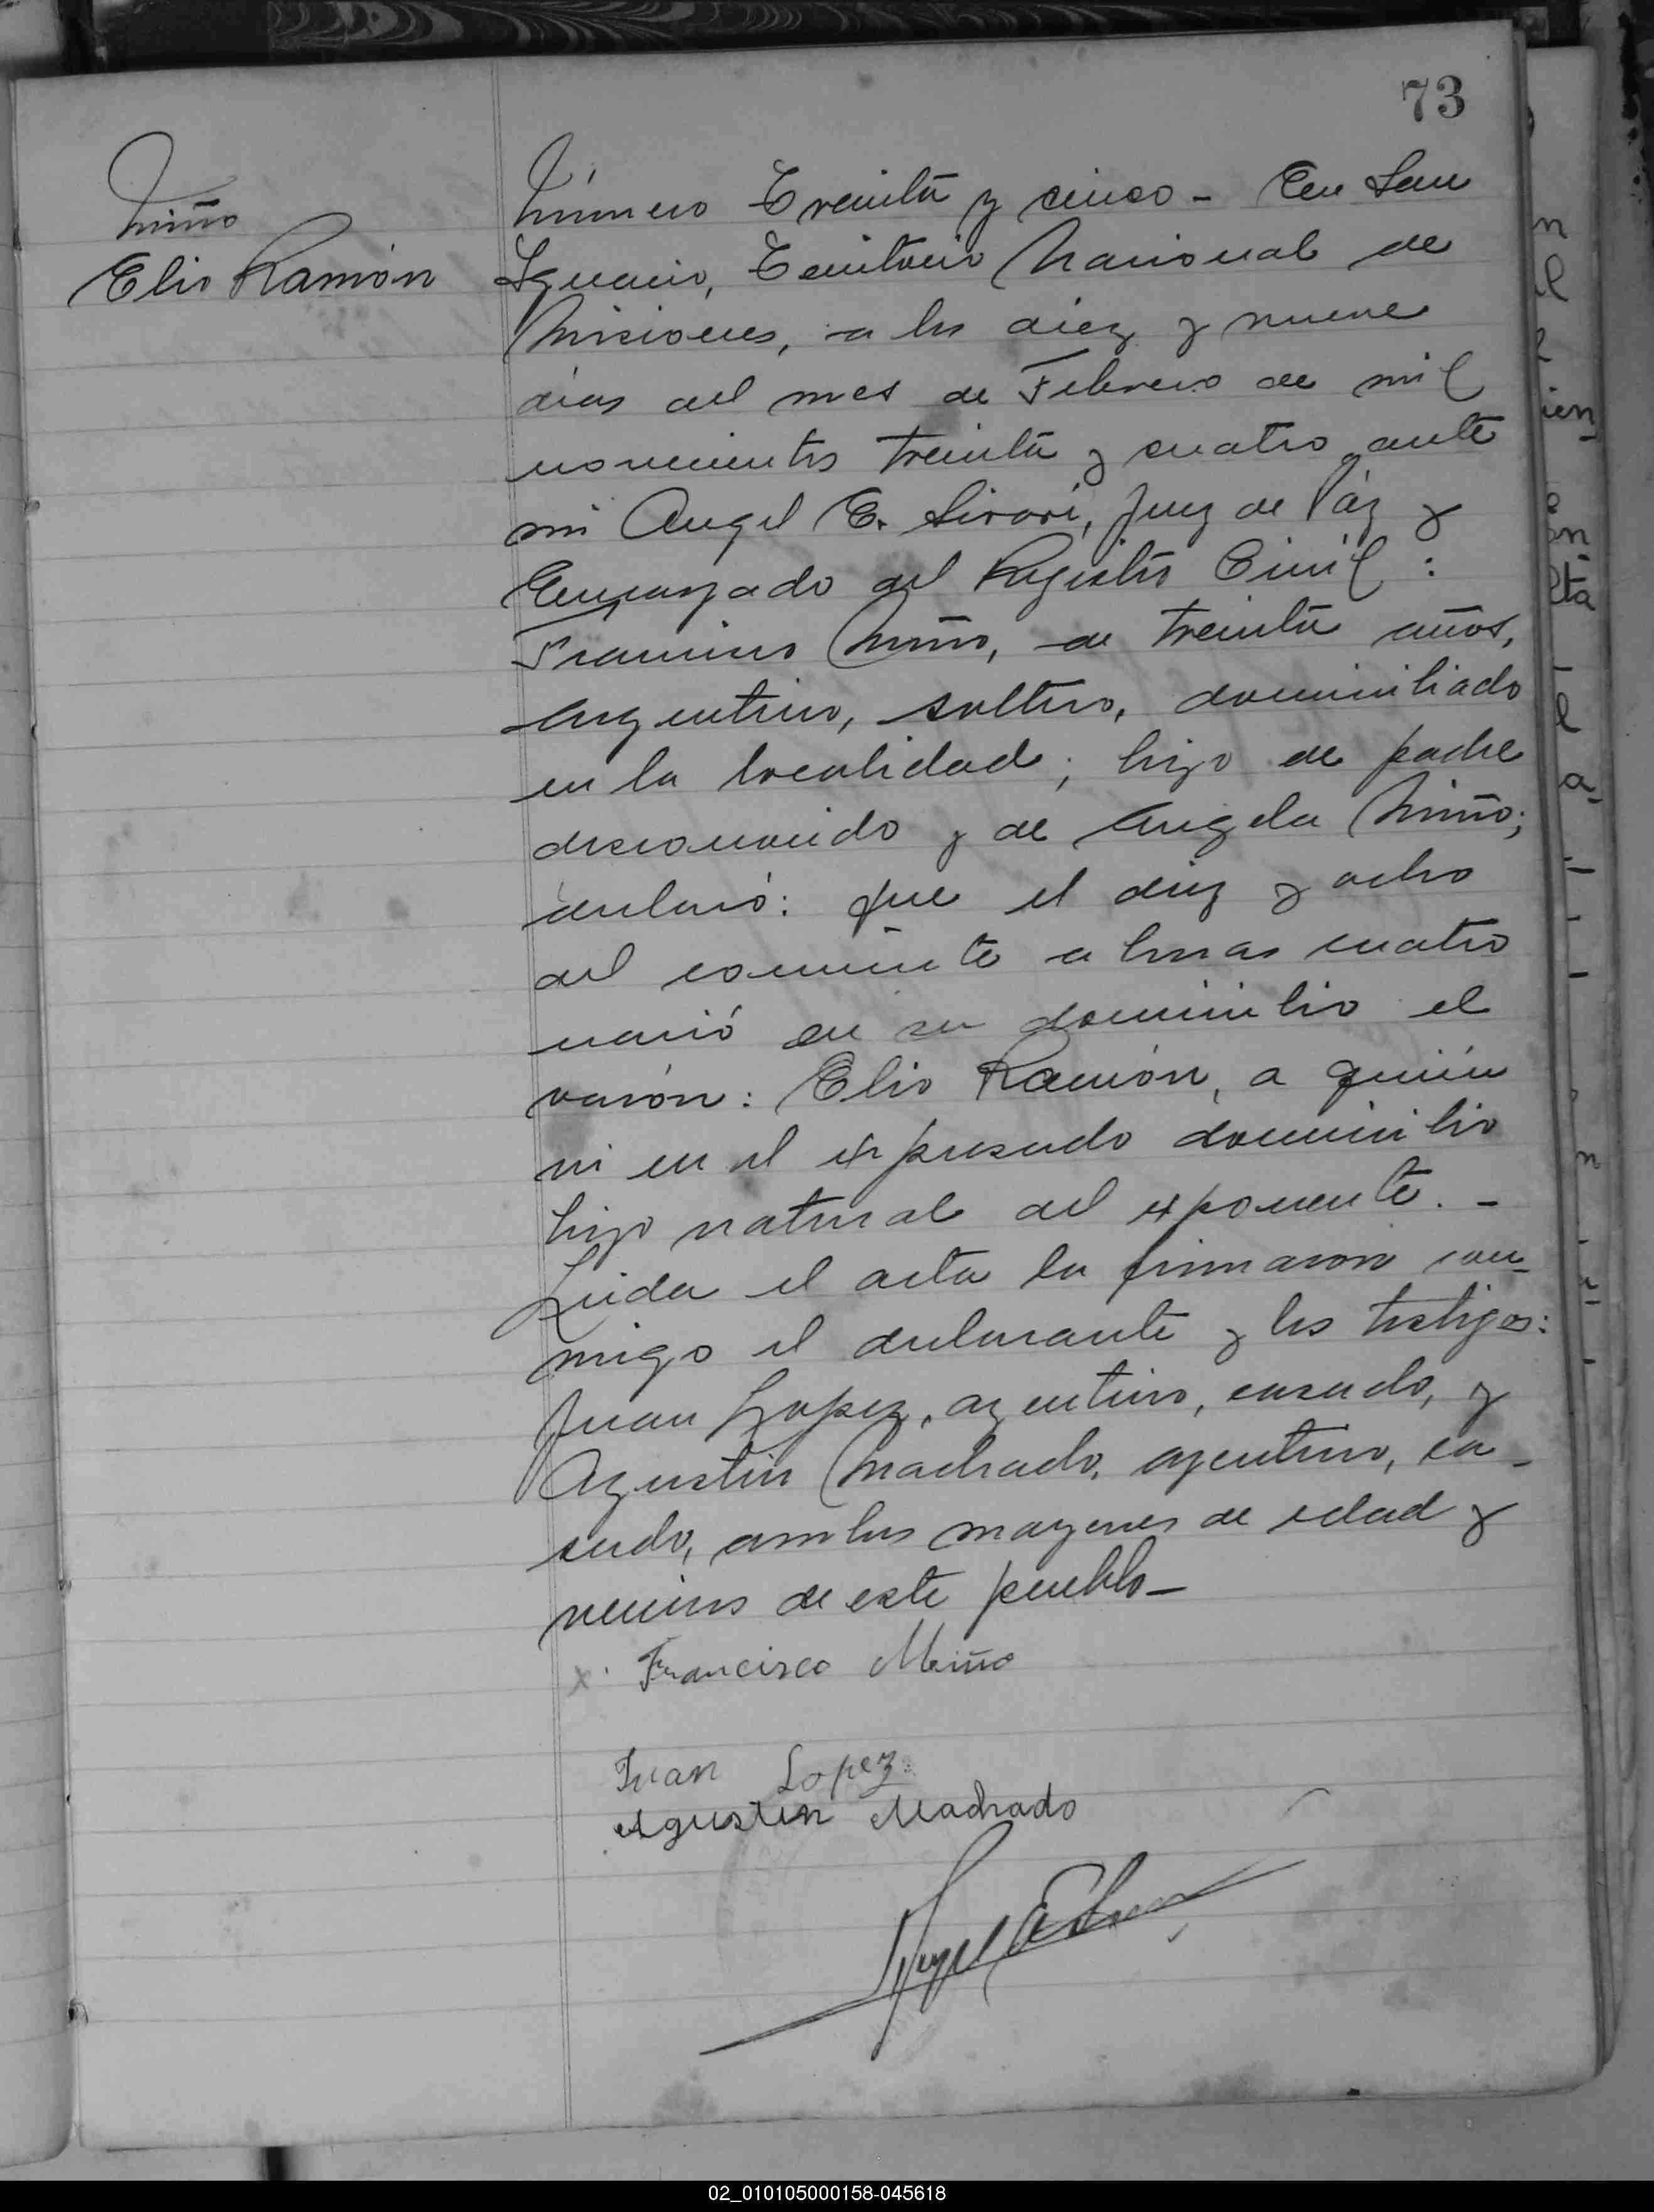 73
Miño
Elio Ramón
Número Treinta y cinco - En San
Ignacio, Territorio Nacional de
Misiones, a los diez y nueve
días del mes de Febrero de mil
novecientos treinta y cuatro ante
mi Angel E. Sivori, Juez de Páz y
Encargado del Registro Civil :
Francisco Miño, de treinta años,
argentino, soltero, domiciliado
en la localidad; hijo de padre
desconocido y de Angela Miño;
declaró: que el diez y ocho
del corriente a horas cuatro
nació en su domicilio el
varón: Elio Ramón, a quién
vi en el expresado domicilio
hijo natural del exponente. -
Leida el acta la firmaron con-
migo el declarante y los testigos:
Juan Lopez, argentino, casado, y
Agustin Machado, argentino, ca-
sado, ambos mayores de edad y
vecinos de este pueblo -
x. Francisco Miño
Juan Lopez
Agustin Machado
Angel E
02_010105000158-045618